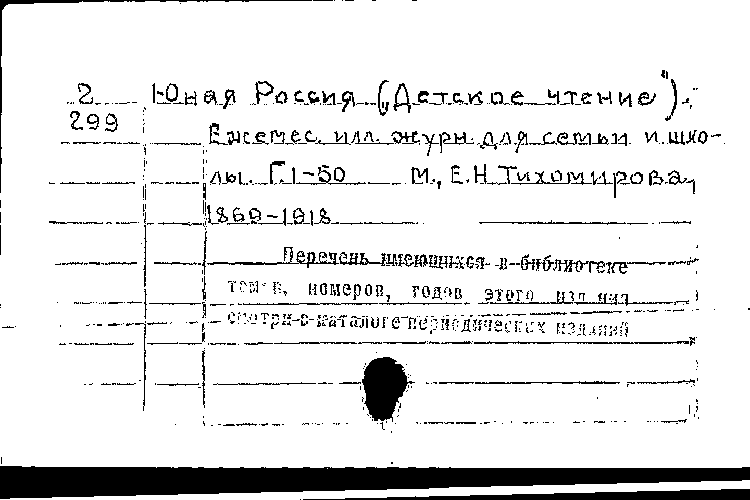 2 Юная Россия („Детское чтение“).
299
Ежемес. илл. журн. для семьи и шко-
лы. Г. 1-50 М., Е.Н Тихомирова,
1869-1918
Перечень имеющихся в библиотеке
томов, номеров, годов этого издания
смотри в каталоге периодических изданий